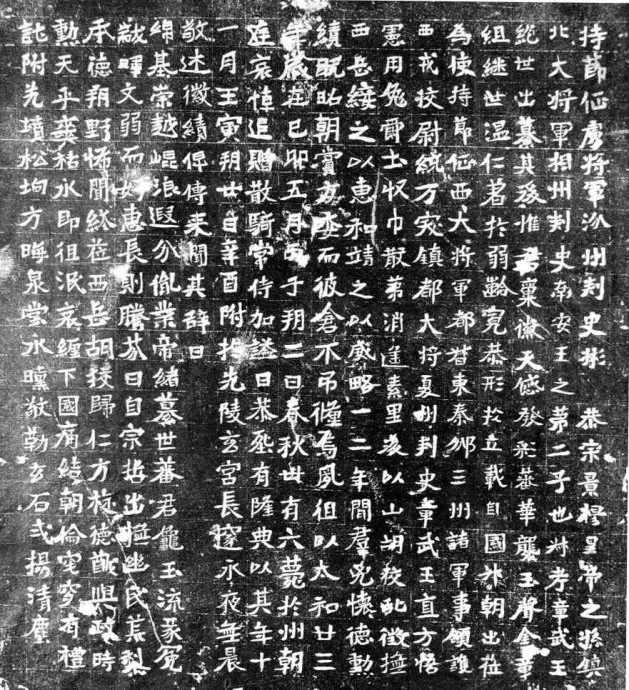 持節征虜將軍汾州刺史彬恭宗景穆皇帝之孫鎮
北大將軍相州刺史南安王之第二子也叔考章武王
絕世出纂其後惟君稟徽天感發彩蕤華襲玉聲金章
組繼世溫仁著於弱齡寬恭形於立載自國升朝出莅
為使持節征西大將軍都督東秦豳三州諸軍事領護
西戎校尉統万突鎮都大將夏州刺史章武王直方悟
憲用免爵土收巾散第消遙素里後以山胡校亂徵撫
西岳綏之以惠和靖之以威略一二年間群兇懷德勳
績既昭朝賞方委而彼倉不弔殲焉夙徂以太和廿三
年歲在己卯五月丙子朔二日春秋卅有六薨於州朝
廷哀悼追贈散騎常侍加謚曰恭丕有隆典以其年十
一月壬寅朔廿日辛酉附於先陵玄宮長窆永夜無晨
敬述徽績俾傳來聞其辭曰
綿基崇越崐浪遐分胤業帝緒纂世蕃君龜玉流彖冕
黻暉文弱而好惠長則騰芬曰自宗哲出撫幽民蒸梨
承德朔野怖聞終莅西岳胡狡歸仁方旌德猷與政時
勳天乎爽祐水即徂泯哀纏下國痛繞朝倫窀穸有禮
託附先墳松埛方晦泉堂永曛敬勒玄石式揚清塵